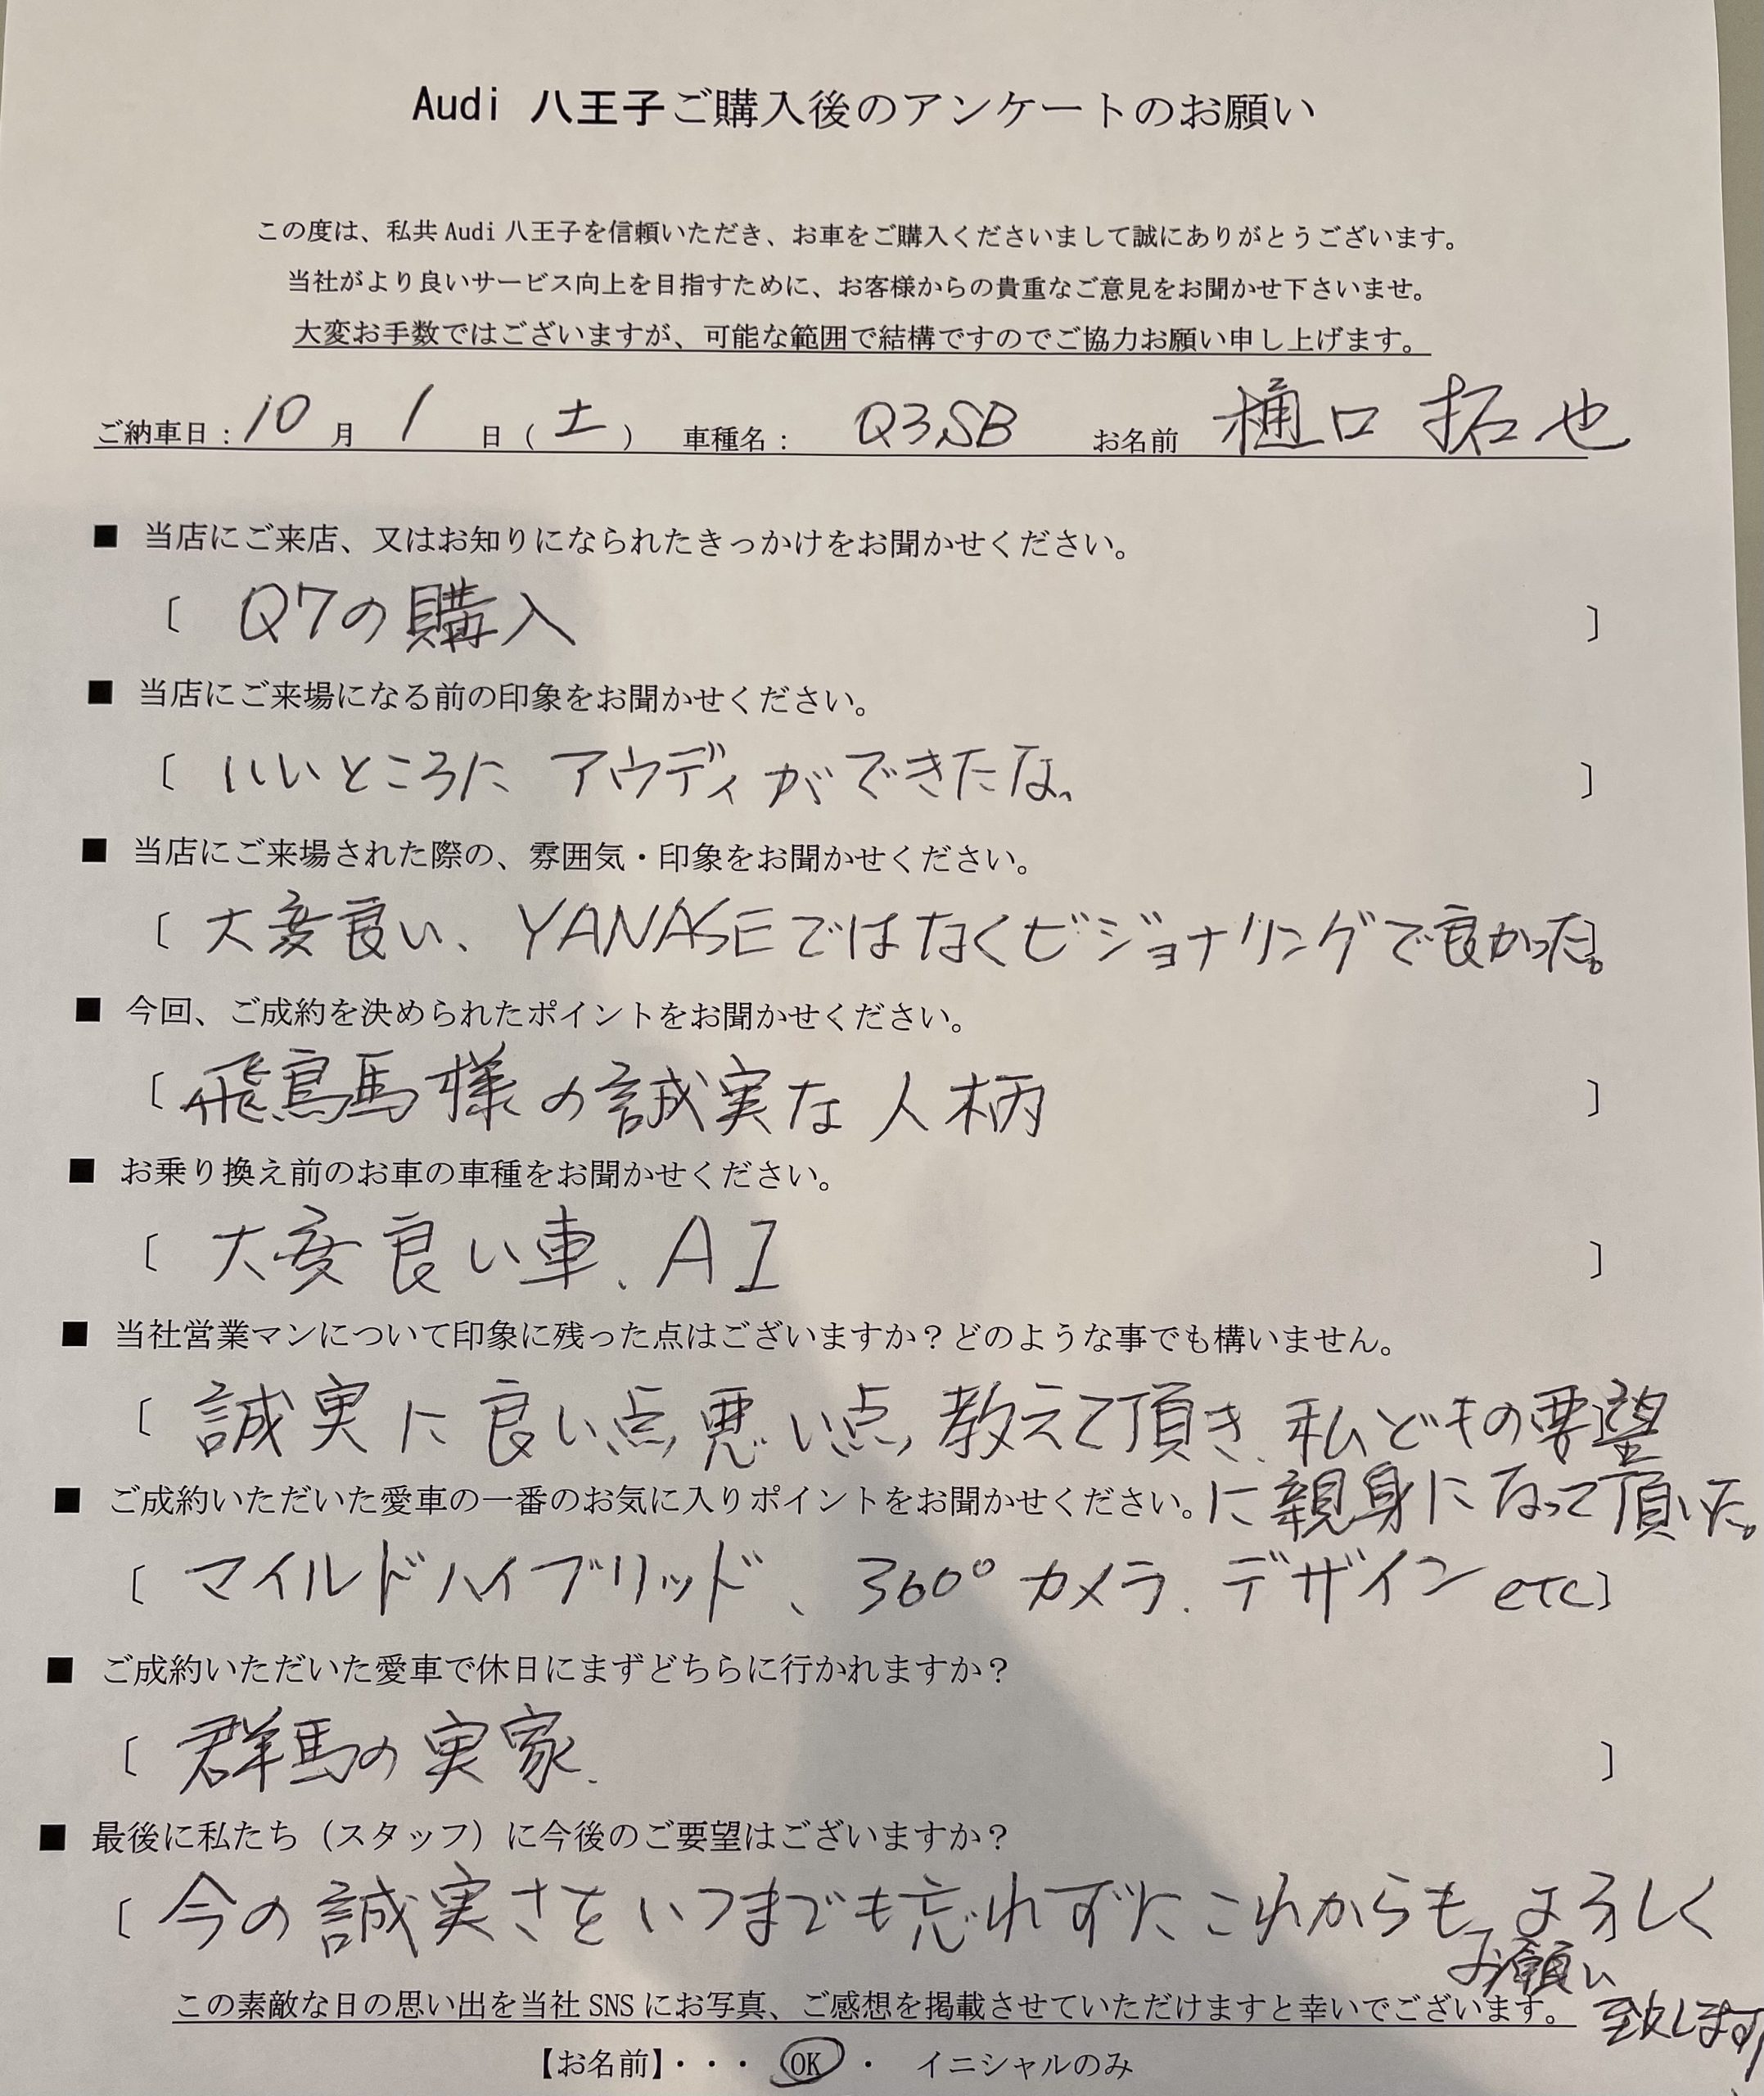 Audi 八王子ご購入後のアンケートのお願い
この度は、私共 Audi 八王子を信頼いただき、お車をご購入くださいまして誠にありがとうございます。
当社がより良いサービス向上を目指すために、お客様からの貴重なご意見をお聞かせ下さいませ。
大変お手数ではございますが、可能な範囲で結構ですのでご協力お願い申し上げます。
ご納車日：10月 1 日（土） 車種名： Q3SB お名前 樋口 拓也
■ 当店にご来店、又はお知りになられたきっかけをお聞かせください。
〔 Q7の購入 〕
■ 当店にご来場になる前の印象をお聞かせください。
〔 いいところに アウディができたな、 〕
■ 当店にご来場された際の、雰囲気・印象をお聞かせください。
〔 大変良い、YANASEではなくビジョナリングで良かった。〕
■ 今回、ご成約を決められたポイントをお聞かせください。
〔 飛鳥馬様の誠実な人柄 〕
■ お乗り換え前のお車の車種をお聞かせください。
〔 大変良い車、A1 〕
■ 当社営業マンについて印象に残った点はございますか？どのような事でも構いません。
〔 誠実に良い点、悪い点、教えて頂き、私どもの要望
に親身になって頂いた。
■ ご成約いただいた愛車の一番のお気に入りポイントをお聞かせください。
〔 マイルドハイブリッド、360°カメラ、デザイン etc〕
■ ご成約いただいた愛車で休日にまずどちらに行かれますか？
〔 群馬の実家、 〕
■ 最後に私たち（スタッフ）に今後のご要望はございますか？
〔 今の誠実さをいつまでも忘れずにこれからも、よろしく
お願い
致します
この素敵な日の思い出を当社 SNS にお写真、ご感想を掲載させていただけますと幸いでございます。
【お名前】・・・ OK ・ イニシャルのみ